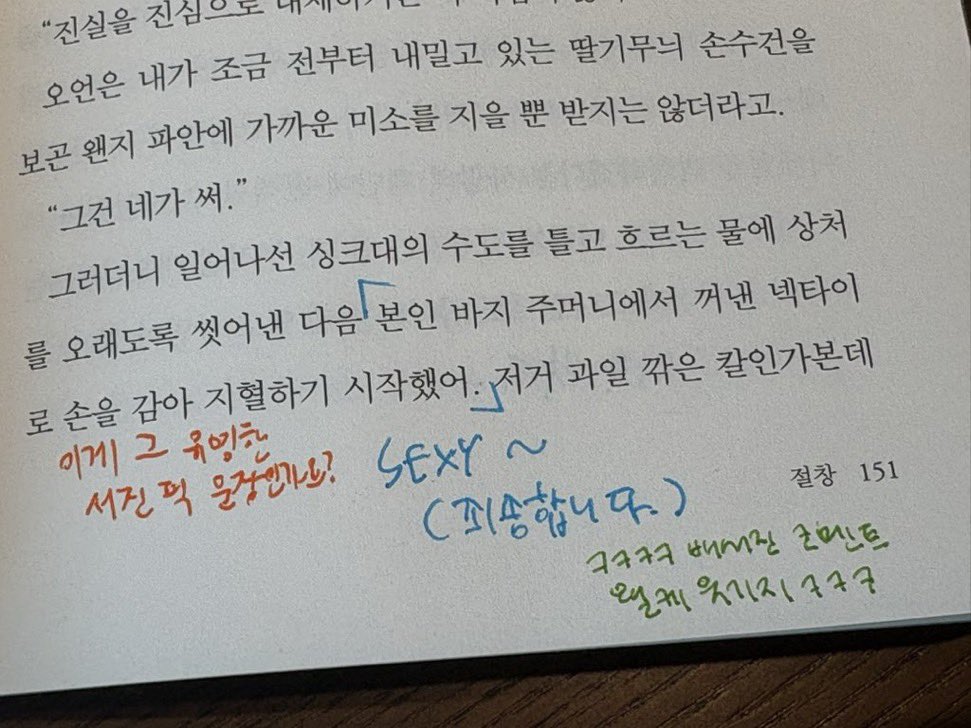 “진실을 진심으로 대체하기는
오언은 내가 조금 전부터 내밀고 있는 딸기무늬 손수건을
보곤 왠지 파안에 가까운 미소를 지을 뿐 받지는 않더라고.
“그건 네가 써.”
그러더니 일어나선 싱크대의 수도를 틀고 흐르는 물에 상처
를 오래도록 씻어낸 다음 「본인 바지 주머니에서 꺼낸 넥타이
로 손을 감아 지혈하기 시작했어.」 저거 과일 깎은 칼인가본데
이게 그 유명한
서진 픽 문장인가요?
SEXY ~
(죄송합니다.)
절창 151
ㅋㅋㅋㅋ 배서진 코멘트
왤케 웃기지 ㅋㅋㅋ